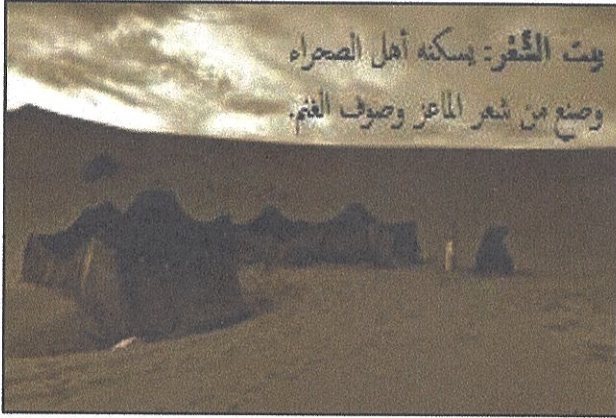 بيت الشَّعْر: يسكنه أهل الصحراء
وصنع من شعر الماعز وصوف الغنم.